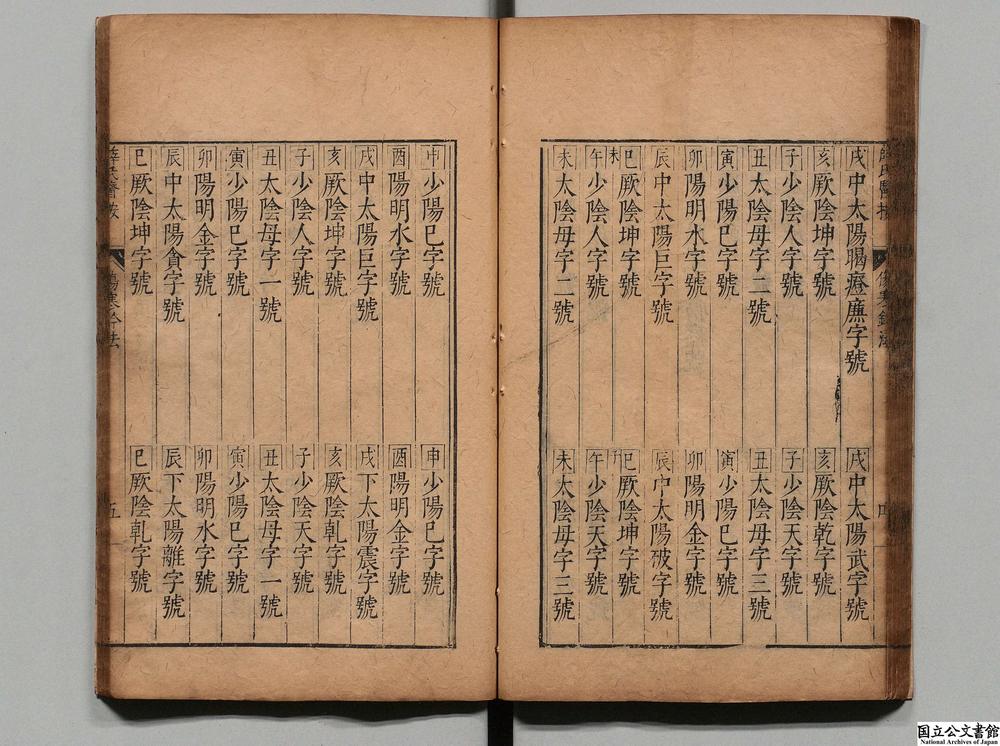 薛氏醫按
傷寒鈐法
四
戌中太陽暍痙廉字號
戌中太陽武字號
亥厥陰坤字號
亥厥陰乾字號
子少陰人字號
子少陰天字號
丑太陰母字二號
丑太陰母字三號
寅少陽巳字號
寅少陽巳字號
卯陽明水字號
卯陽明金字號
辰中太陽巨字號
辰中太陽破字號
巳厥陰坤字號
巳厥陰坤字號
午少陰人字號
午少陰天字號
未太陰母字二號
未太陰母字三號
申少陽巳字號
申少陽巳字號
酉陽明水字號
酉陽明金字號
戌中太陽巨字號
戌下太陽震字號
亥厥陰坤字號
亥厥陰乹字號
子少陰人字號
子少陰天字號
丑太陰母字一號
丑太陰母字一號
寅少陽巳字號
寅少陽巳字號
卯陽明金字號
卯陽明水字號
辰中太陽貪字號
辰下太陽離字號
巳厥陰坤字號
巳厥陰乹字號
薛氏醫按
傷寒鈐法
五
国立公文書館
National Archives of Japan